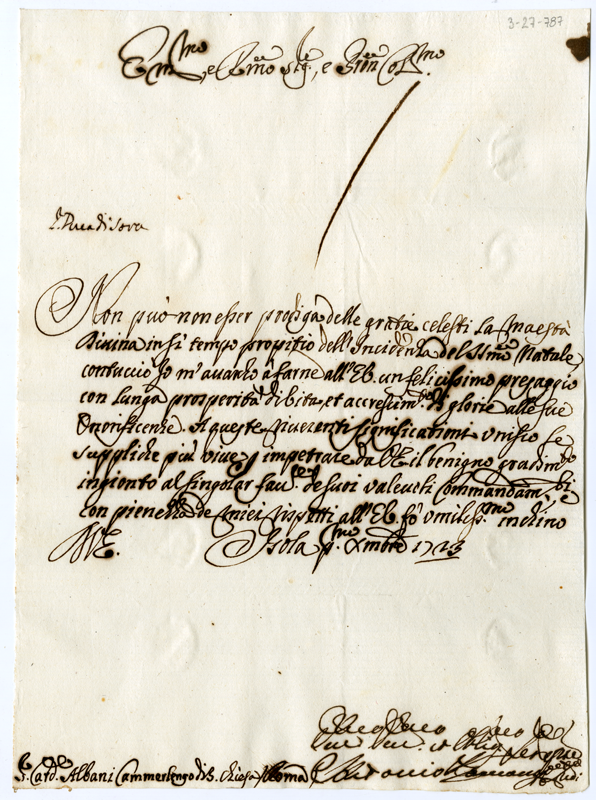 3-27-787
Em.mo, e R.mo Sig.re, e P.ron Col.mo
S. Duca di Sora
Non può non esser prodiga delle gratie celesti la Maestà
Divina in sì tempo propitio dell'Incidenza del S.mo Natale,
con tuccio Io m'avanzo à farne all'E.V. un felicissimo presaggio
con lunga prosperità di vita, et accrescim.to di glorie alle sue
Onorificenze. A queste riverenti significationi unisco le
suppliche più vive, p impetrare dall'E. il benigno gradim.to
ingionto al singolar fav.re de suoi valevoli Commandam.ti, e
con pienezza de miei rispetti all'E.V. fò umiliss.mo inchino
Isola p.mo Xmbre 1723
S. Card. Albani Cammerlengo di S. Chiesa Roma